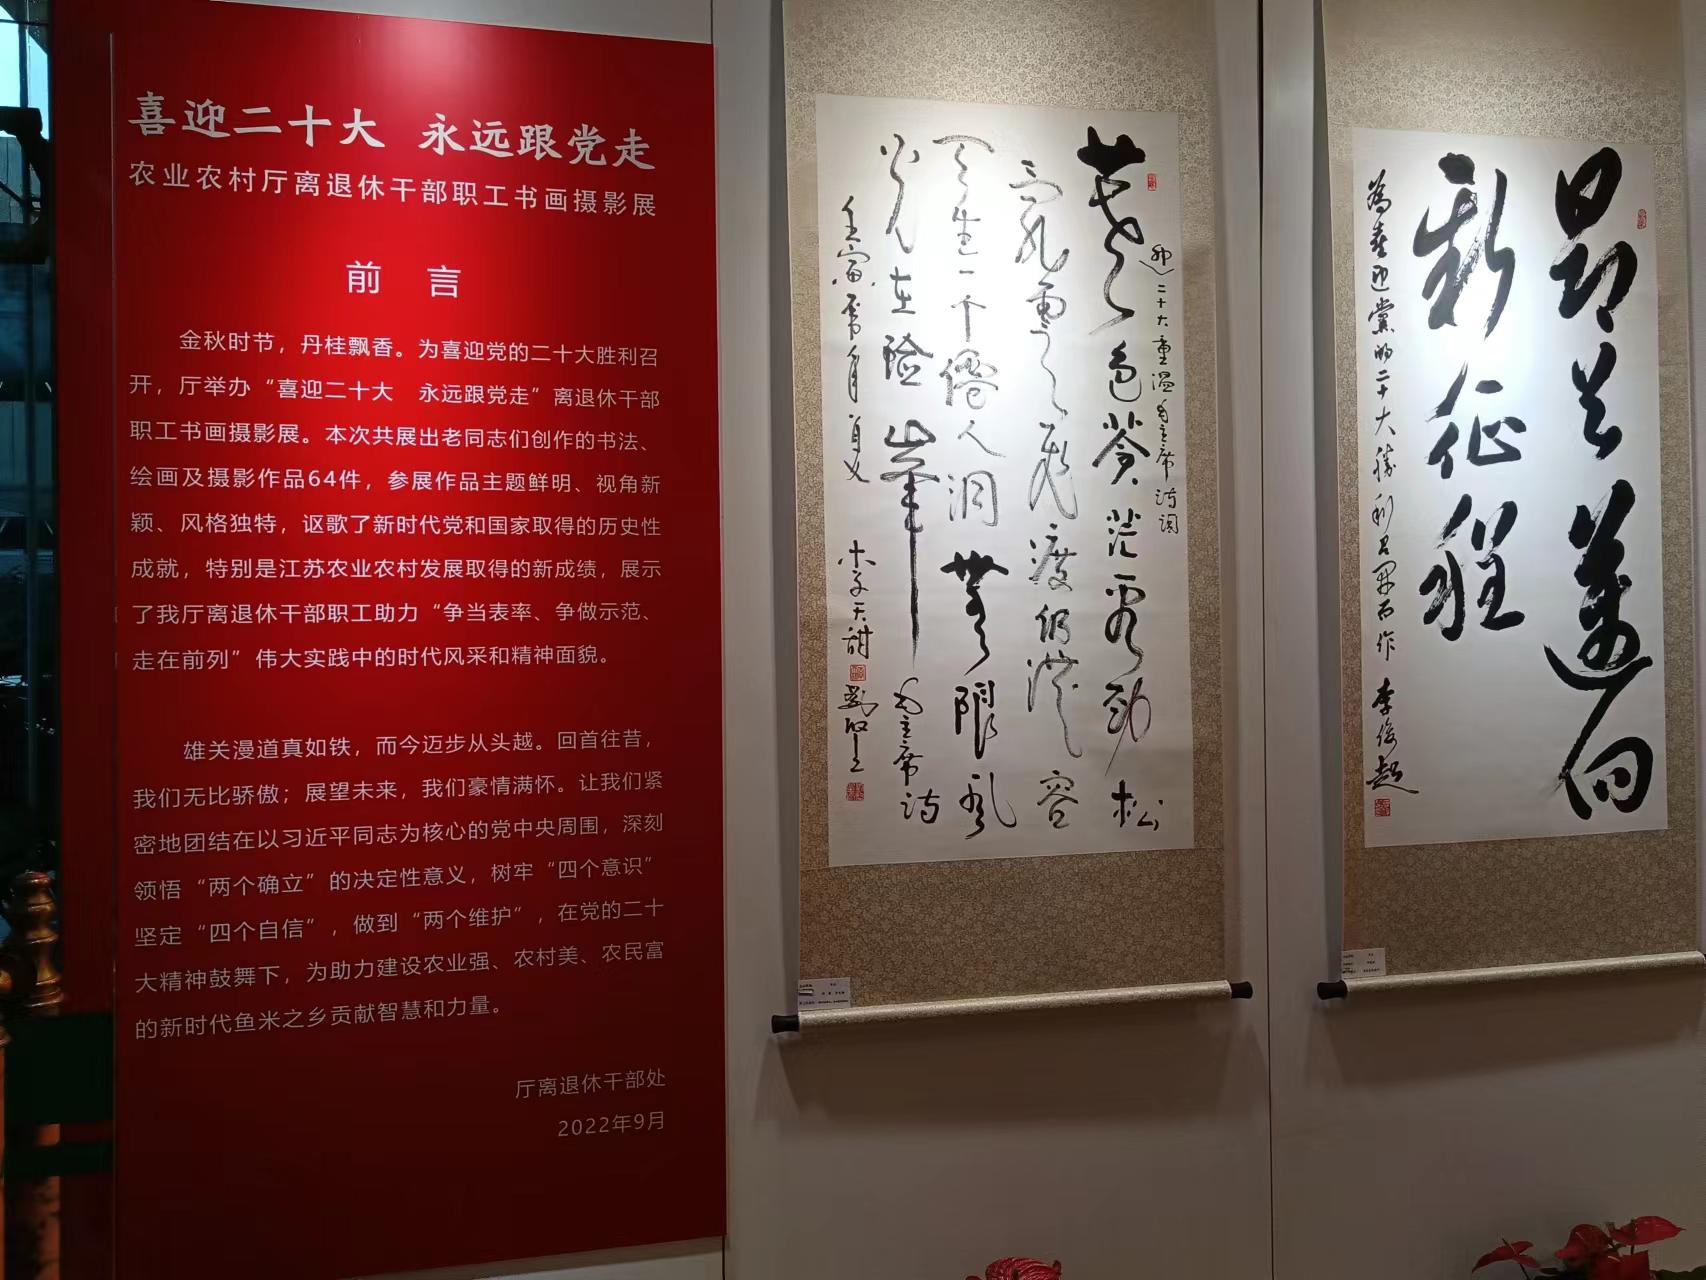 喜迎二十大 永远跟党走
农业农村厅离退休干部职工书画摄影展
前 言
金秋时节，丹桂飘香。为喜迎党的二十大胜利召
开，厅举办“喜迎二十大 永远跟党走”离退休干部
职工书画摄影展。本次共展出老同志们创作的书法、
绘画及摄影作品64件，参展作品主题鲜明、视角新
颖、风格独特，讴歌了新时代党和国家取得的历史性
成就，特别是江苏农业农村发展取得的新成绩，展示
了我厅离退休干部职工助力“争当表率、争做示范、
走在前列”伟大实践中的时代风采和精神面貌。
雄关漫道真如铁，而今迈步从头越。回首往昔，
我们无比骄傲；展望未来，我们豪情满怀。让我们紧
密地团结在以习近平同志为核心的党中央周围，深刻
领悟“两个确立”的决定性意义，树牢“四个意识”
坚定“四个自信”，做到“两个维护”，在党的二十
大精神鼓舞下，为助力建设农业强、农村美、农民富
的新时代鱼米之乡贡献智慧和力量。
厅离退休干部处
2022年9月
迎二十大重温毛主席诗词
暮色苍茫看劲松
乱云飞渡仍从容
天生一个仙人洞無限风
光在险峰 毛主席诗
壬寅年夏 李天甜
昂首邁向
新征程
為喜迎黨的二十大勝利召开而作 李俊超